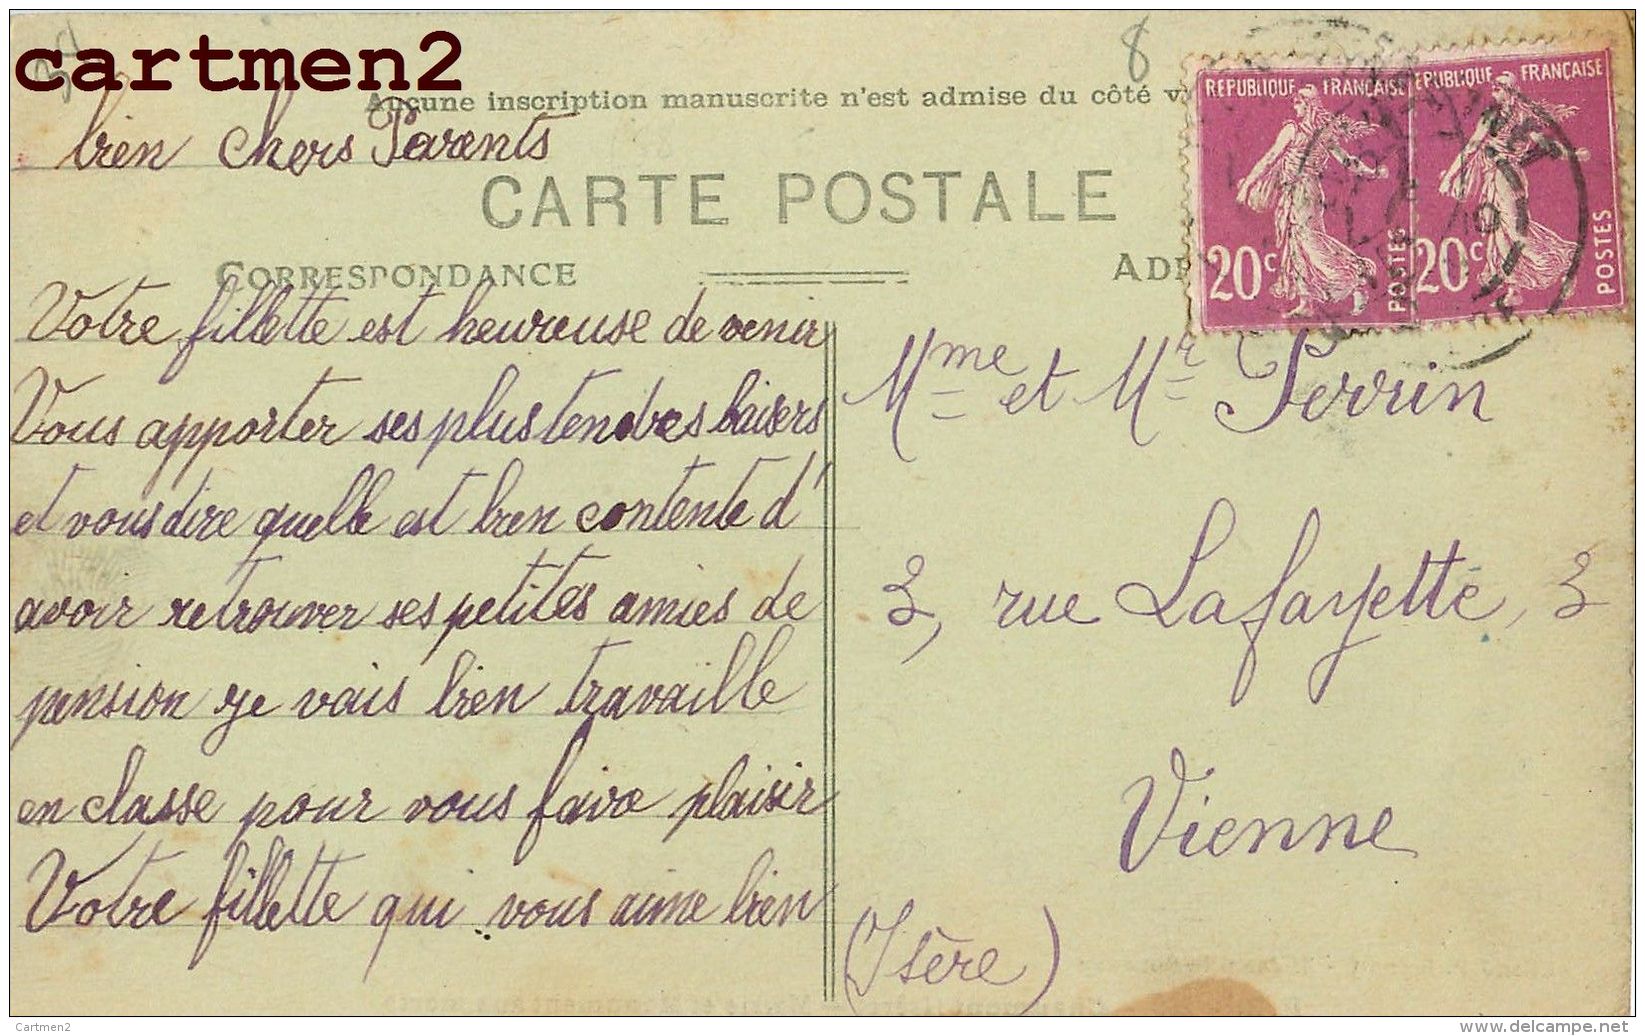 cartmen2
8
Aucune inscription manuscrite n'est admise du côté v
bien chers Parents
CARTE POSTALE
CORRESPONDANCE
AD
REPUBLIQUE FRANÇAISE
20c
POSTES
REPUBLIQUE FRANÇAISE
20c
POSTES
Votre fillette est heureuse de venir
Vous apporter ses plus tendres baisers
et vous dire quelle est bien contente d'
avoir retrouver ses petites amies de
pension je vais bien travaille
en classe pour vous faire plaisir
Votre fillette qui vous aime bien
Mme et Mr Perrin
3, rue Lafayette, 3
Vienne
(Isère)
Cartmen2
www.delcampe.net